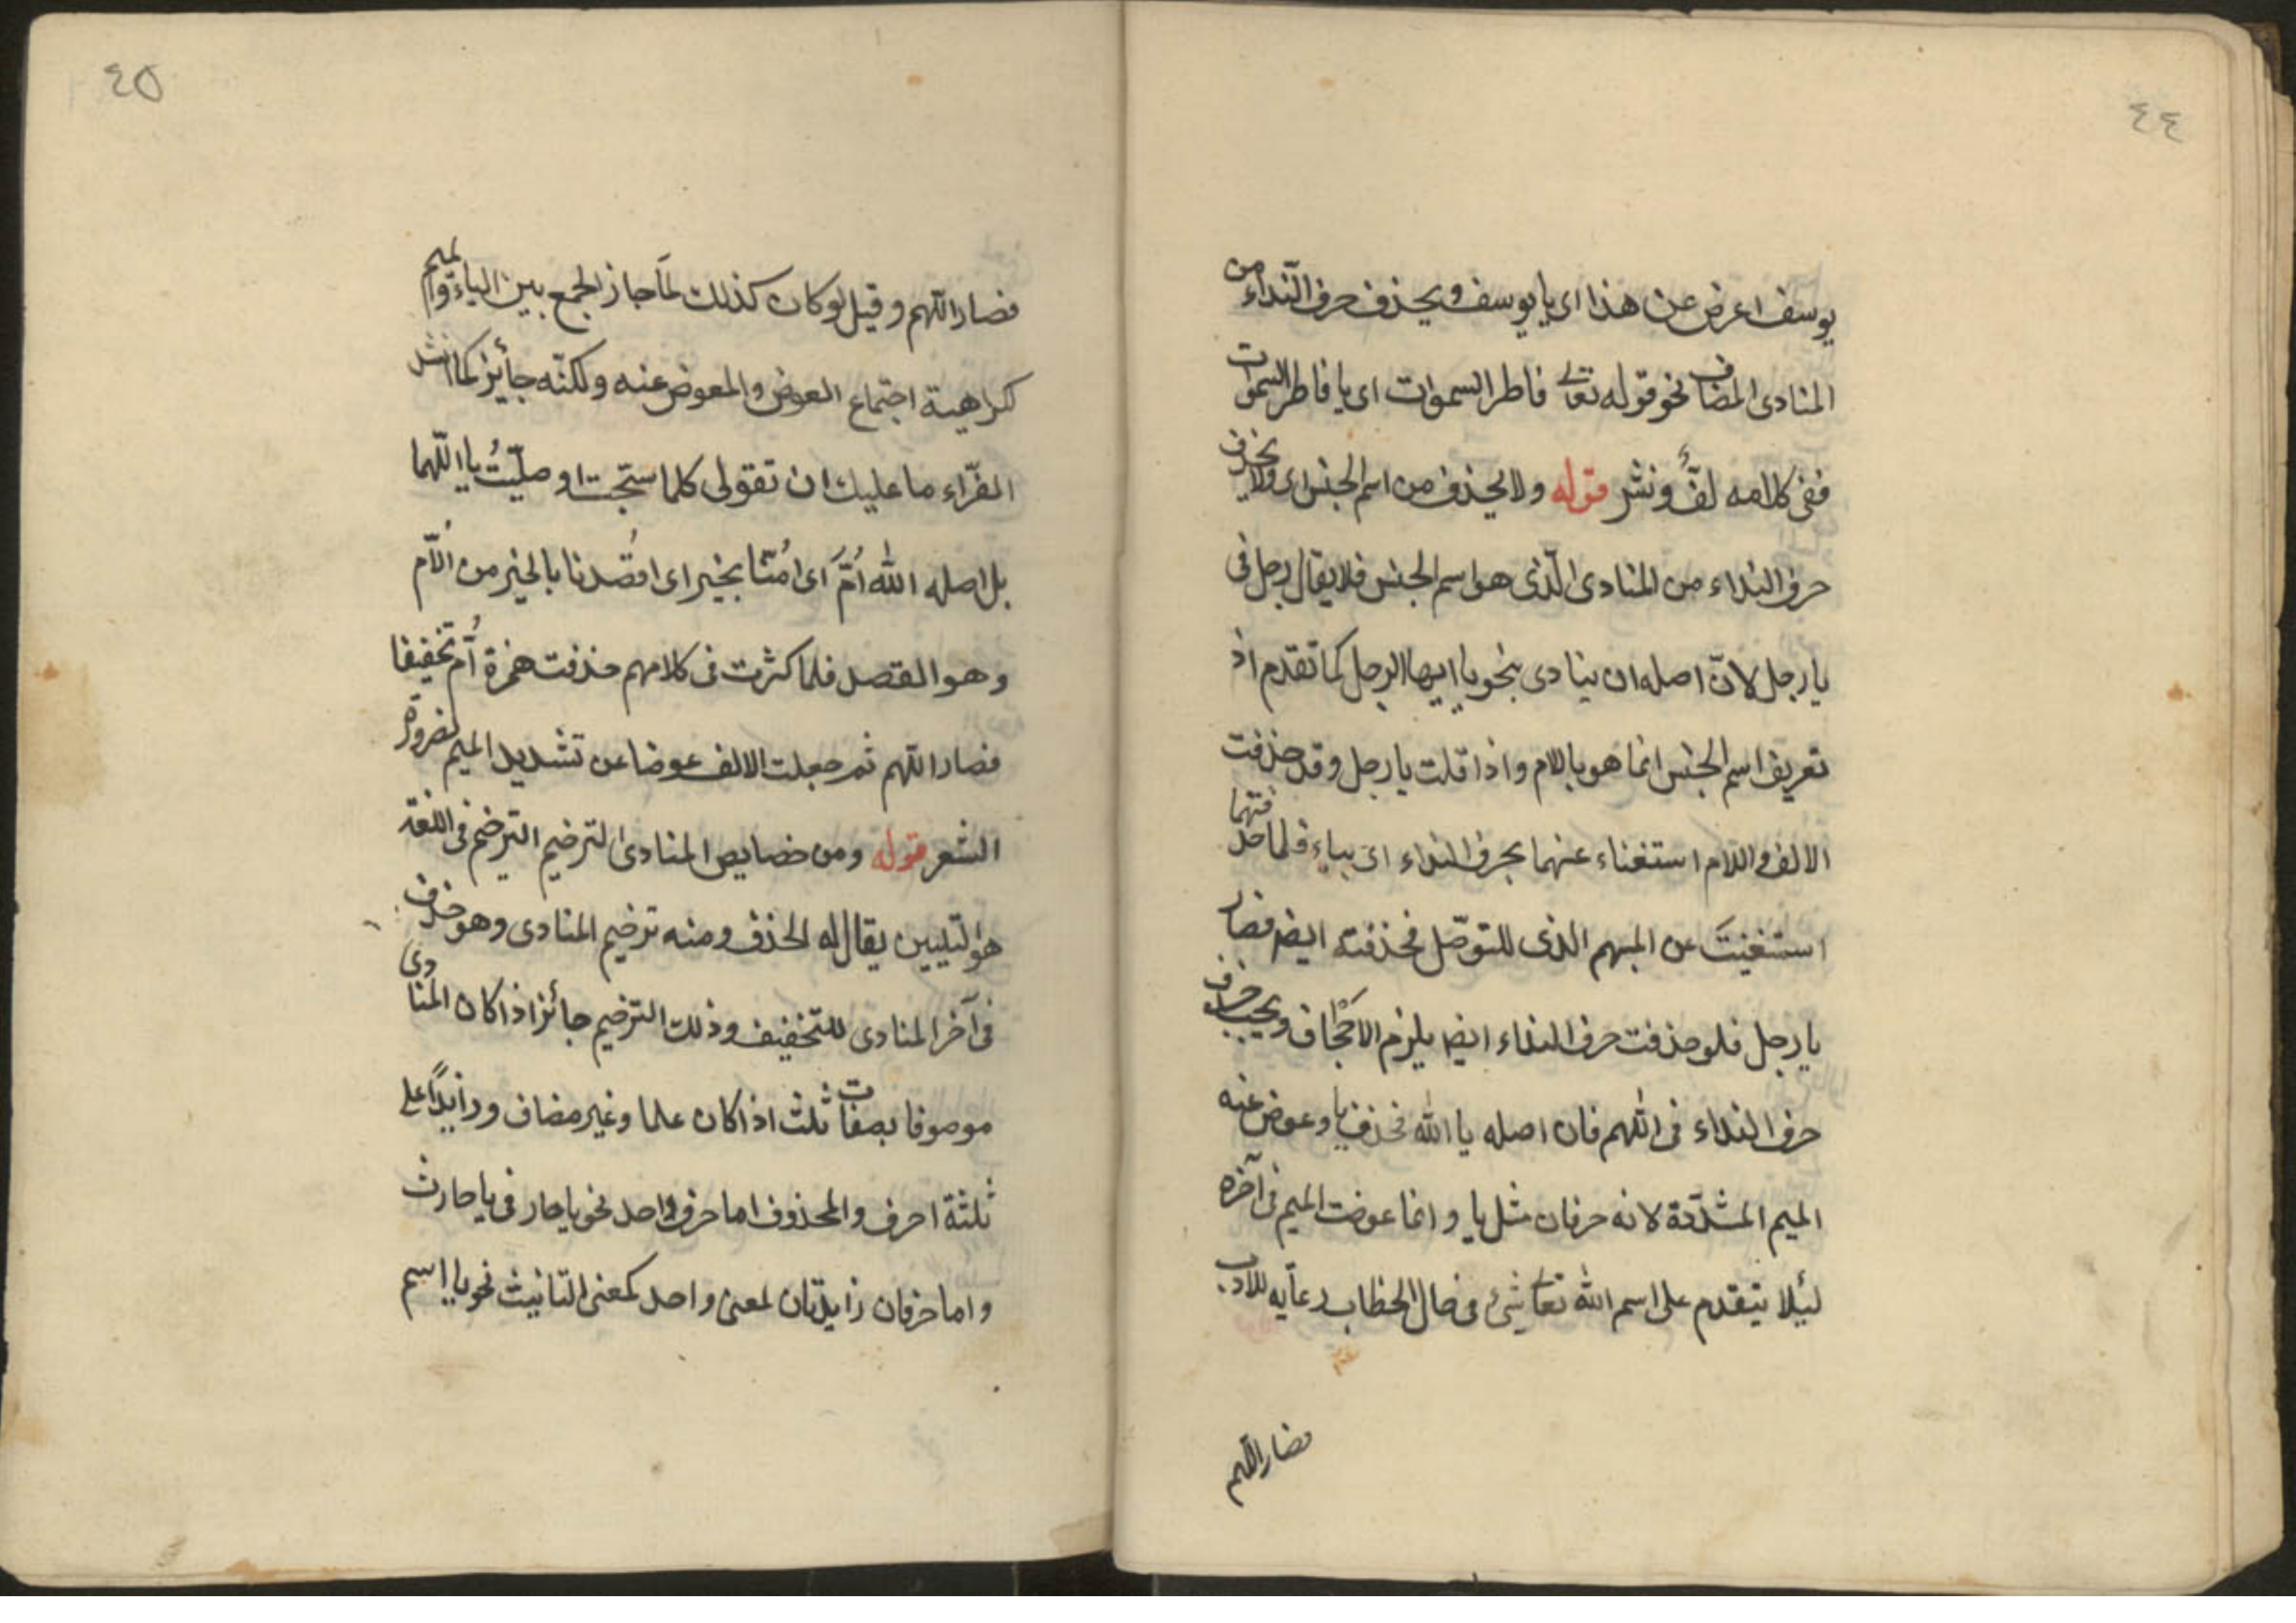 ٤٤
يوسف اعرض عن هذا اى يا يوسف ويحذف حرف النّداء من
المنادى المضاف نحو قوله تعالى فاطر السموات اى يا فاطر السموات
ففى كلامه لفّ ونشر قوله ولا يحذف من اسم الجنس اى ولا يحذف
حرف النداء من المنادى الّذى هو اسم الجنس فلا يقال رجل فى
يا رجل لانّ اصله ان ينادى بنحو يا ايها الرجل كما تقدم اذ
تعريف اسم الجنس انما هو باللام واذا قلت يا رجل وقد حذفت
الالف واللام استغناء عنهما بحرف النداء اى بياء فلما حذفتهما
استغنيتَ عن المبهم الذى للتوصّل فحذفته ايضا فصار
يا رجل فلو حذفت حرف النداء ايضا يلزم الاجحاف ويجب حذف
حرف النداء فى اللهم فان اصله يا الله فحذف يا وعوض عنه
الميم المشدّدة لانه حرفان مثل يا وانما عوضت الميم فى آخره
لئلا يتقدم على اسم الله تعالى شىٔ فى حال الخطاب رعاية للادب
فصار اللهم
٤٥
فصار اللّهم وقيل لو كان كذلك لمَا جاز الجمع بين الياء والميم
كراهية اجتماع العوض والمعوض عنه ولكنّه جائز كما انشد
الفرّاء ما عليك ان تقولى كلما سبّحت او صلّيتُ يا اللّهما
بل اصله الله اُمَّ اى اُمّنا بخير اى اقصُدنا بالخير من الاَّم
وهو القصد فلما كثرت فى كلامهم حذفت همزة اُمّ تخفيفا
فصار اللهم ثم جعلت الالف عوضا عن تشديد الميم لضرورة
الشعر قوله ومن خصايص المنادى الترخيم الترخيم فى اللغة
هو التليين يقال له الحذف ومنه ترخيم المنادى وهو حذف
فى آخر المنادى للتخفيف وذلك الترخيم جائز اذا كان المنادى
موصوفا بصفات ثلث اذا كان علما وغير مضاف وزايدًا على
ثلثة احرف والمحذوف اما حرف واحد نحو يا حار فى يا حارث
واما حرفان زايدتان لمعنى واحد كمعنى التانيث نحو يا اسم